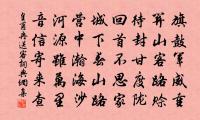 旗鼓軍威重
關山客路賒
待封甘度隴
回首不思家
城下春山路
營中瀚海沙
河源雖萬里
音信寄來查
皇甫冉送客詞典網集